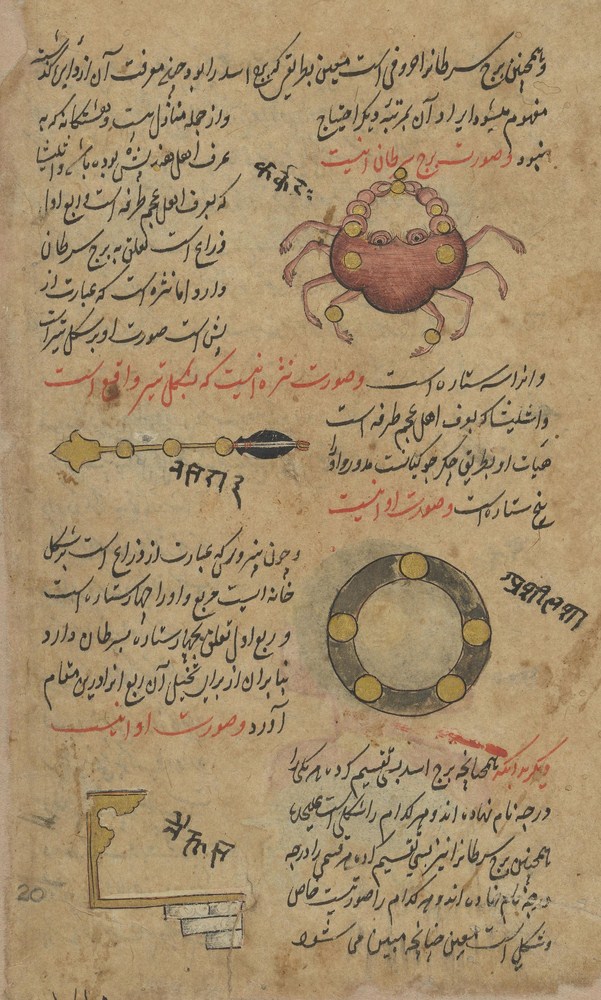 و همچنین برج سرطانرا حروفی است معین بطریقی که برج اسد را بود چنانچه معرفت آن از دایرهٔ گذشته
مفهوم میشود ایراد آن بمرتبهٔ دیگر احتیاج
نبود وصورت برج سرطان اینست
و از جمله منازل بیست و هشتگانه که به
عرف اهل هند پش بوده باشد و اشلیشا
که بعرف اهل عجم طرفه است و ربع اول
ذراع است تعلق به برج سرطان
دارد اما نثره است که عبارت از
پش است صورت او بر شکل تیر است
و او را سه ستاره است وصورت نثره اینست که بشکل تیر واقع است
و اشلیشا که بعرف اهل عجم طرفه است
هیأت او بطریق چکر جوکیانست مدور و او را
پنج ستاره است وصورت او اینست
و چون پنروس که عبارت از ذراع است بر شکل
خانه ایست مربع و او را چهار ستاره است
و ربع اول تعلق بچهار ستاره بسرطان دارد
بنابران از برای تخیل آن ربع او را درین مقام
آورد وصورت او اینست
دیگر بدانکه همچنانچه برج اسد بسی تقسیم کرده هر یکی را
درجه نام نهاده اند و هر کدام را شکلی است علیحده
همچنین برج سرطانرا نیز بسی تقسیم کرده هر قسمی را درجه
درجه نام نهاده اند و هر کدام را صورتیست خاص
و شکلی است معین چنانچه مبین می شود
20